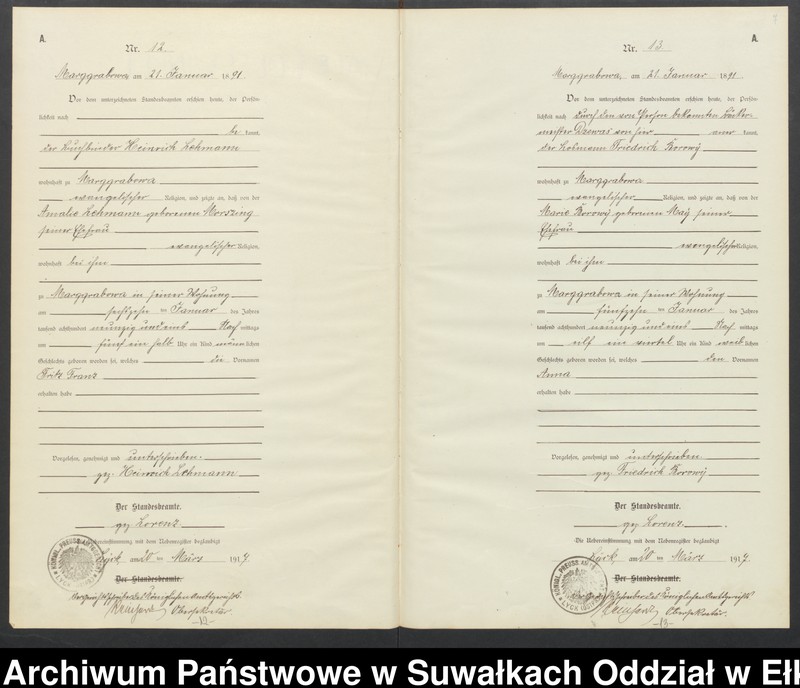 A.
Nr. 12
Marggrabowa am 21. Januar 1891
Vor dem unterzeichneten Standesbeamten erschien heute, der Persön-
lichkeit nach
be kannt,
der Buchbinder Heinrich Lehmann
wohnhaft zu Marggrabowa
evangelischer Religion, und zeigte an, daß von der
Amalie Lehmann geborenen
seiner Ehefrau
evangelischer Religion,
wohnhaft bei ihm
zu Marggrabowa in seiner Wohnung
am sechszehn ten Januar des Jahres
tausend achthundert neunzig und eins Nach mittags
um fünf ein halb Uhr ein Kind männ lichen
Geschlechts geboren worden sei, welches die Vornamen
Fritz Franz
erhalten habe
Vorgelesen, genehmigt und unterschrieben.
gez. Heinrich Lehmann
Der Standesbeamte.
gez Lorenz
Übereinstimmung mit dem Nebenregister beglaubigt
Lyck am 20 ten März 1917.
Der Standesbeamte.
des Königlichen Amtsgerichts
Obersekretär.
-12-
7
A.
Nr. 13
Marggrabowa, am 21. Januar 1891
Vor dem unterzeichneten Standesbeamten erschien heute, der Persön-
lichkeit nach durch den von Person bekannten Bäcker-
meister von hier aner kannt,
der Losmann Friedrich Borowy
wohnhaft zu Marggrabowa
evangelischer Religion, und zeigte an, daß von der
Marie Borowy geborenen May seiner
Ehefrau
evangelischer Religion,
wohnhaft bei ihm
zu Marggrabowa in seiner Wohnung
am fünfzehn ten Januar des Jahres
tausend achthundert neunzig und eins Nach mittags
um elf ein viertel Uhr ein Kind weib lichen
Geschlechts geboren worden sei, welches den Vornamen
Anna
erhalten habe
Vorgelesen, genehmigt und unterschrieben
gez. Friedrich Borowy
Der Standesbeamte.
gez Lorenz
Die Übereinstimmung mit dem Nebenregister beglaubigt
Lyck am 20 ten März 1917.
Der Standesbeamte.
des Königlichen Amtsgerichts
Obersekretär.
-13-
Archiwum Państwowe w Suwałkach Oddział w Eł